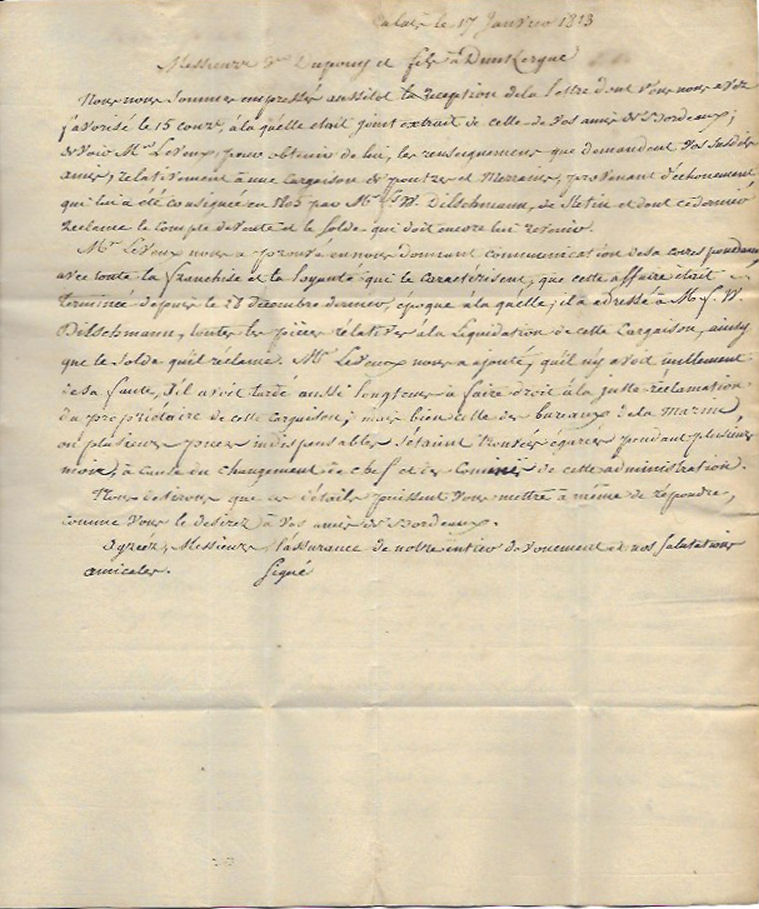 Calais le 17 Janvier 1813
Messieurs Ve Dupouy et fils à Dunkerque
Nous nous sommes empressés aussitot la reception de la lettre dont vous nous avez
favorisé le 15 courr, à la quelle etait joint extrait de celle de vos amis de Bordeaux,
de voir Mr. LeVeux, pour obtenir de lui, les renseignemens que demandent vos susdits
amis, relativement à une cargaison de poutres et Merrains, provenant d'échouement
qui lui à été consignée en 1805 par Mr. W. Dilschmann, de Stetin et dont ce dernier
reclame le Compte de Vente et le solde qui doit encore lui revenir.
Mr. LeVeux nous a prouvé en nous donnant communication de sa correspondance,
avec toute la franchise et la loyauté qui le caractérisent, que cette affaire était
terminée depuis le 28 decembre dernier, époque à la quelle, il a adressé à M. J. W.
Dilschmann, toutes les pièces rélatives à la Liquidation de cette Cargaison, ainsy
que le solde qu'il reclame. Mr. LeVeux nous a ajouté, qu'il n'y avoit nullement
de sa faute, s'il avoit tardé aussi longtems à faire droit à la juste réclamation
du propriétaire de cette cargaison; mais bien celle des bureaux de la Marine,
ou plusieurs pieces indispensables s'étaient trouvées égarées pendant plusieurs
mois, à cause du changement de chef et des Commis de cette administration.
Nous desirons que ces détails puissent vous mettre à même de répondre,
comme vous le desirez à vos amis de Bordeaux.
Agréez, Messieurs, l'assurance de notre entier devouement et nos salutations
amicales. Signé